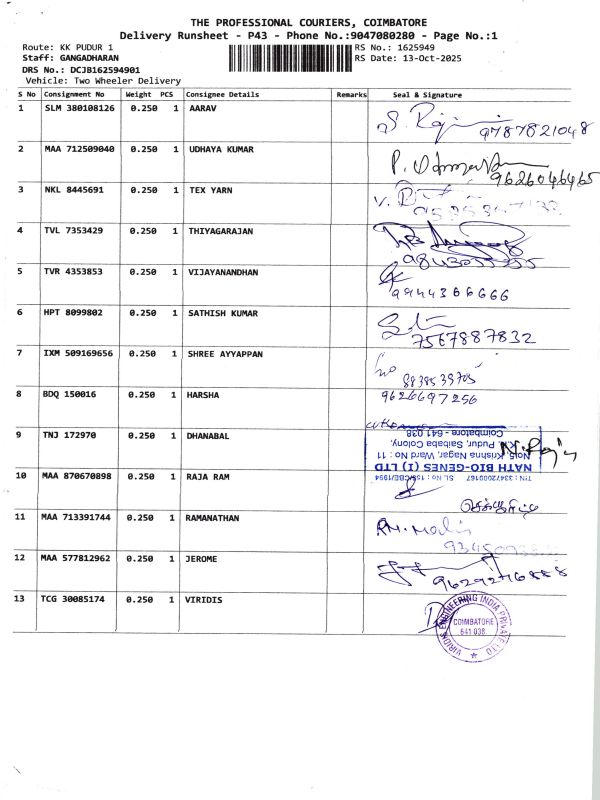 THE PROFESSIONAL COURIERS, COIMBATORE
Delivery Runsheet - P43 - Phone No.:9047080280 - Page No.:1
Route: KK PUDUR 1
RS No.: 1625949
Staff: GANGADHARAN
RS Date: 13-Oct-2025
DRS No.: DCJB162594901
Vehicle: Two Wheeler Delivery
S No Consignment No Weight PCS Consignee Details Remarks Seal & Signature
1 SLM 380108126 0.250 1 AARAV
9787821048
2 MAA 712509040 0.250 1 UDHAYA KUMAR
9626046465
3 NKL 8445691 0.250 1 TEX YARN
4 TVL 7353429 0.250 1 THIYAGARAJAN
5 TVR 4353853 0.250 1 VIJAYANANDHAN
9944366666
6 HPT 8099802 0.250 1 SATHISH KUMAR
7567887832
7 IXM 509169656 0.250 1 SHREE AYYAPPAN
8838539705
8 BDQ 150016 0.250 1 HARSHA
9626697256
9 TNJ 172970 0.250 1 DHANABAL
NATH BIO-GENES (I) LTD
No:5 Krishna Nagar, Ward No : 11
K.K. Pudur, Saibaba Colony,
Coimbatore - 641 038
10 MAA 870670898 0.250 1 RAJA RAM
11 MAA 713391744 0.250 1 RAMANATHAN
12 MAA 577812962 0.250 1 JEROME
13 TCG 30085174 0.250 1 VIRIDIS
VIRIDIS ENGINEERING INDIA PRIVATE LTD
COIMBATORE
641 038.